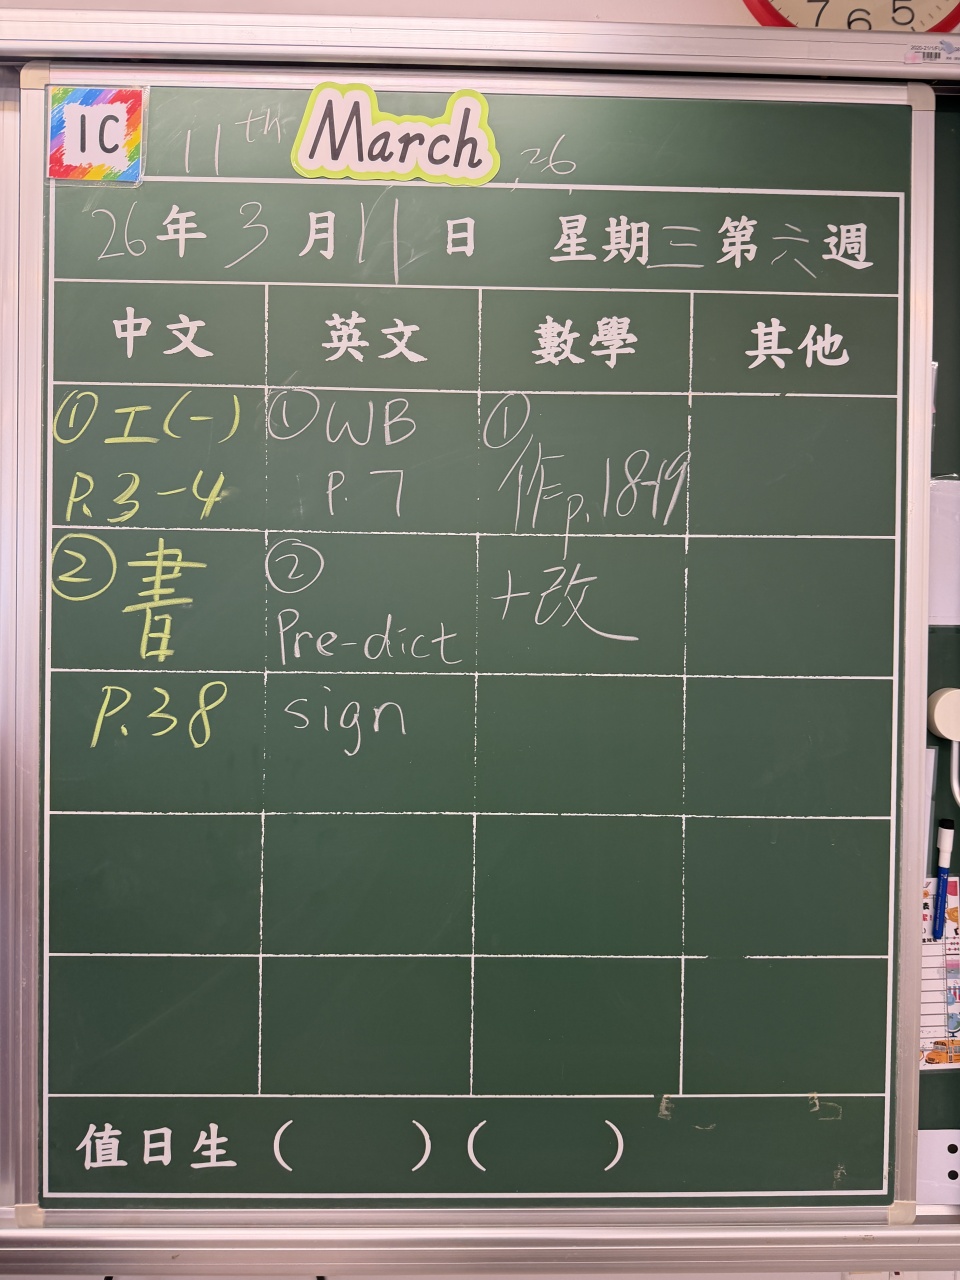 7 6 5
1C
11th March, 26,
26年3月11日 星期三第六週
中文 英文 數學 其他
①工(一)
P.3-4
②書
P.38
①WB
P.7
②
Pre-dict
sign
①
作p.18-19
+改
值日生 ( ) ( )